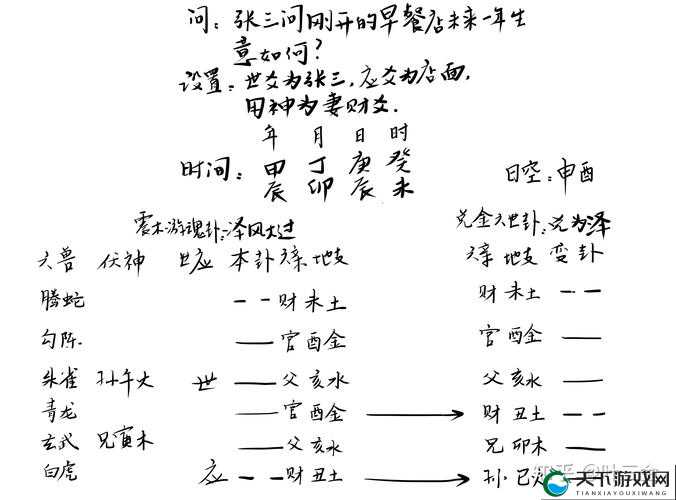 问：张三问刚开的早餐店未来一年生
意如何？
设置：世爻为张三，应爻为店面，
用神为妻财爻.
年 月 日 时
时间：甲 丁 庚 癸
辰 卯 辰 未
日空：申酉
震木游魂卦：泽风大过
兑金六世卦：兑为泽
六兽 伏神 世应 本卦六亲 地支
六亲 地支 变卦
腾蛇 财未土
财未土
勾陈. 官酉金
官酉金
朱雀 孙午火 世 父亥水
父亥水
青龙 官酉金
财丑土
玄武 兄寅木 父亥水
兄卯木
白虎 应 财丑土
孙巳
天下游戏网
TIANXIAYOUXIWANG